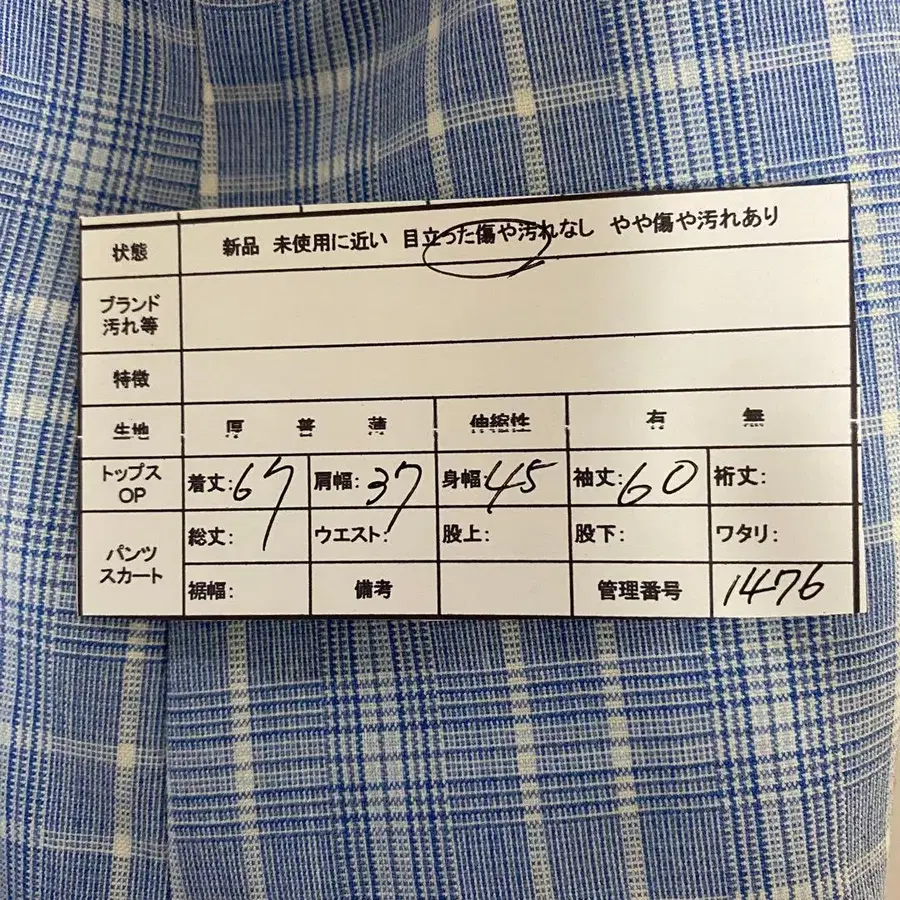 状態 新品 未使用に近い 目立った傷や汚れなし やや傷や汚れあり
ブランド
汚れ等
特徴
生地 厚 普 薄 伸縮性 有 無
トップス
OP
着丈:67 肩幅:37 身幅:45 袖丈:60 裄丈:
パンツ
スカート
総丈: ウエスト: 股上: 股下: ワタリ:
裾幅: 備考 管理番号 1476